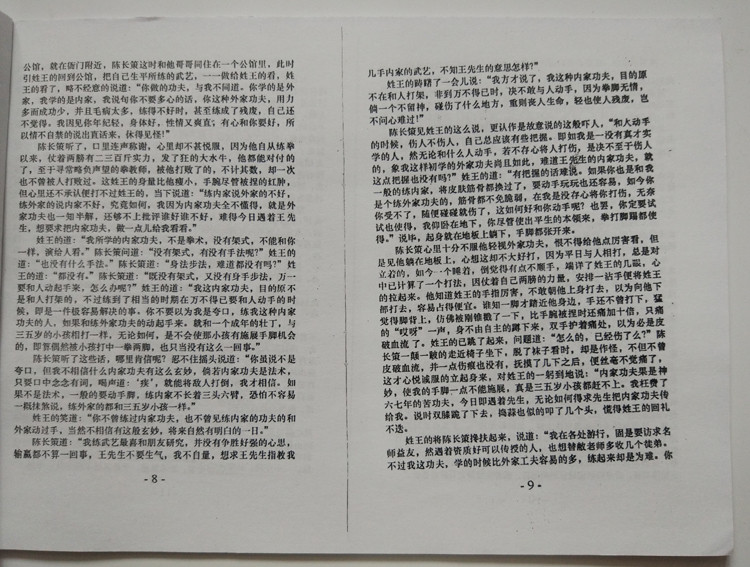 公馆，就在衙门附近，陈长策这时和他哥哥同住在一个公馆里，此时
引姓王的回到公馆，把自己生平所练的武艺，一一做给姓王的看，姓
王的看了，略不经意的说道：“你做的功夫，与我不同道。你学的是外
家，我学的是内家，我说句你不要多心的话，你这种外家功夫，用力
多而成功少，并且毛病太多，练得不好时，甚至练成了残废，自己还
不觉得。我因见你年纪轻，身体好，性情又爽直；有心和你要好，所
以情不自禁的说出直话来，休得见怪！”
陈长策听了，口里连声称谢，心里却不甚悦服，因为他自从练拳
以来，仗着两膀有二三百斤实力，发了狂的大水牛，他都能对付的
了，至于寻常略负声望的拳教师，被他打败了的，不计其数，却一次
也不曾被人打败过。这姓王的身量比他瘦小，手腕尽管被捏的红肿，
但心里还不承认便打不过姓王的，当下说道：“练内家说外家的不好，
练外家的说内家不好，究竟如何，我因为内家功夫全不懂得，就是外
家功夫也一知半解，还够不上批评谁好谁不好，难得今日遇着王先
生，想要求把内家功夫，做一点儿给我看看。”
姓王的道：“我所学的内家功夫，不是拳术，没有架式，不能和你一
样，演给人看。”陈长策问道：“没有架式，有没有手法呢？”姓王的
道：“也没有什么手法。”陈长策道：“身法步法，难道都没有吗？”姓
王的道：“都没有。”陈长策道：“既没有架式，又没有身手步法，万一
要和人动起手来，怎么办呢？”姓王的道：“我这内家功夫，目的原不
是和人打架的，不过练到了相当的时期在万不得已要和人动手的时
候，即是一件极容易解决的事。你不要以为我是夸口，练我这种内家
功夫的人，如果和练外家功夫的动起手来。就和一个成年的壮丁，与
三五岁的小孩相打一样，无论如何，是不会使那小孩有施展手脚机会
的，即算偶然被小孩打中一拳两脚，也只当没有这么一回事。”
陈长策听了这些话，哪里肯信呢？忍不住摇头说道：“你虽说不是
夸口，但我不相信什么内家功夫有这么玄妙，倘若内家功夫是法术，
只要口中念念有词，喝声道：‘疾’，就能将敌人打倒，我才相信。如
果不是法术，一般的要动手脚，练内家不长着三头六臂，恐怕不容易
一概抹煞说，练外家的都和三五岁小孩一样。”
姓王的笑道：“你不曾练过内家功夫，也不曾见练内家的功夫的和
外家动过手，当然不相信有这般玄妙，将来自然有明白的一日。”
陈长策道：“我练武艺最喜和朋友研究，并没有争胜好强的心思，
输赢都不算一回事，王先生不要生气，我不自量，想求王先生指教我
- 8 -
几手内家的武艺，不知王先生的意思怎样？”
姓王的踌躇了一会儿说：“我方才说了，我这种内家功夫，目的原
不在和人打架，非到万不得已时，决不敢与人动手，因为拳脚无情，
倘一个不留神，碰伤了什么地方，重则丧人生命，轻也使人残废，岂
不问心难过！”
陈长策见姓王的这么说，更认作是故意说的这般吓人，“和人动手
的时候，伤人不伤人，自己总应该有些把握，即如我是一没有真才实
学的人，然无论和什么人动手，若不存心将人打伤，是决不至于伤人
的，象我这样初学的外家功夫尚且如此，难道王先生的内家功夫，就
这点把握也没有吗？”姓王的道：“有把握的话难说。如果你也是和我
一般的练内家，将皮肤筋骨都换过了，要动手玩玩也还容易，如今你
是个练外家功夫的，筋骨都不免脆弱，在我是没存心将你打伤，无奈
你受不了，随便碰碰就伤了，这如何好和你动手呢？也罢，你定要试
试也使得，我仰卧在地下，你尽管使出平生的本领来，拳打脚踢都使
得。”说毕，起身就在地板上躺下，手脚都张开来。
陈长策心里十分不服他轻视外家功夫，恨不得给他点厉害看，但
是见他躺在地板上，心想这却不大好打，因为平日与人相打，总是对
立着的，如今一个睡着，倒觉得有点不顺手，端详了姓王的几眼，心
中已计算了一个打法，因仗着自己两膀的力量，安排一拈手便将姓王
的拉起来。他知道姓王的手指厉害，不敢朝他上身打去，以为向他下
部打去，容易占得便宜。谁知一脚才踏近他身边，手还不曾打下，猛
觉得脚背上，仿佛被刚锥戳了一下，比手腕被捏时还痛加十倍，只痛
的“哎呀”一声，身不由自主的蹲下来，双手护着痛处，以为必是皮
破血流了。姓王的已跳了起来，问题道：“怎么的，已经伤了么？”陈
长策一颠一跛的走近椅子坐下，脱了袜子看时，却是作怪，不但不曾
皮破血流，并一点伤痕也没有，抚摸了几下之后，便丝毫不觉痛了，
这才心悦诚服的立起身来，对姓王的一躬到地说：“内家功夫果是神
妙，使我的手脚一点不能施展，真是三五岁小孩都赶不上。我枉费了
六七年的苦功夫，今日即遇着先生，无论如何得求先生把内家功夫传
给我。说时双膝跪了下去，捣蒜也似的叩了几个头，慌得姓王的回礼
不迭。
姓王的将陈长策搀扶起来，说道：“我在各处游行，固是要访求名
师益友，然遇着资质好可以传授的人，也想替敝老师多收几个徒弟。
不过我这功夫，学的时候比外家工夫容易的多，练起来却是为难。你
- 9 -